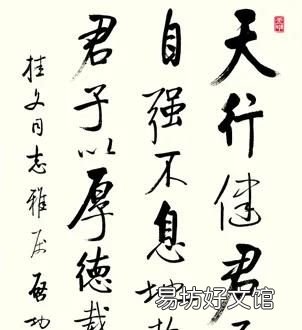 天行健君
自强不息地
君子以厚德載
桂文同志雅属 啟功
易坊好文馆